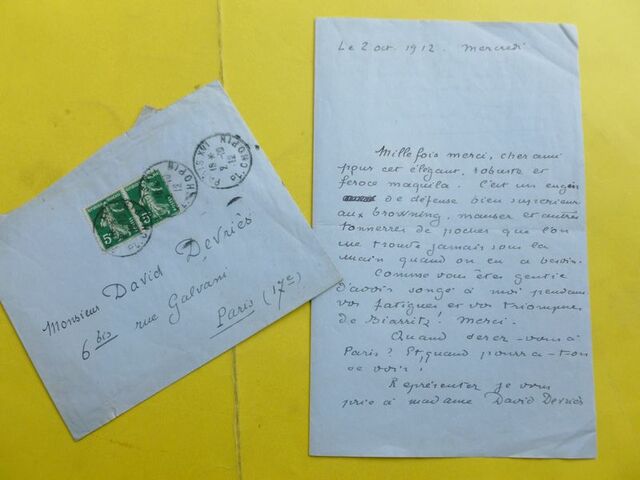 Le 2 oct. 1912. Mercredi
Mille fois merci, cher ami
pour cet élégant, robuste et
féroce maquila. C'est un engin
de défense bien supérieur
aux browning, mauser et autres
tonnerres de poches que l'on
ne trouve jamais sous la
main quand on en a besoin.
Comme vous êtes gentil
d'avoir songé à moi pendant
vos fatigues et vos triomphes
de Biarritz! Merci.
Quand serez-vous à
Paris? Et quand pourra-t-on
se voir!
Représenter je vous
prie à madame David Devriès
Monsieur David Devriès
6 bis rue Galvani
Paris (17e)
PL. CHOPIN
5c 5c